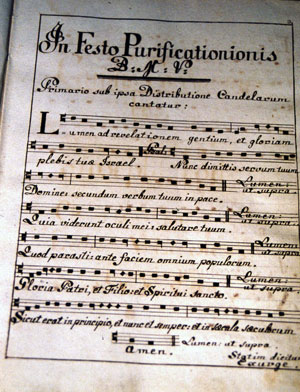 In Festo Purificationionis
B: M: V:
Primario sub ipsa Distributione Candelarum
cantatur:
Lumen ad revelationem gentium, et gloriam
plebis tuæ Israel. Nunc dimittis servum tuum
Domine: secundum verbum tuum in pace. Lumen: ut supra
Quia viderunt oculi mei: salutare tuum. Lumen: ut supra
Quod parasti: ante faciem omnium populorum. Lumen ut supra
Gloria Patri, et Filio: et Spiritui Sancto. Lumen: ut supra
Sicut erat in principio, et nunc et semper: et in sæcula sæculorum
amen. Lumen: ut supra.
Statim dicitur
Exurge.